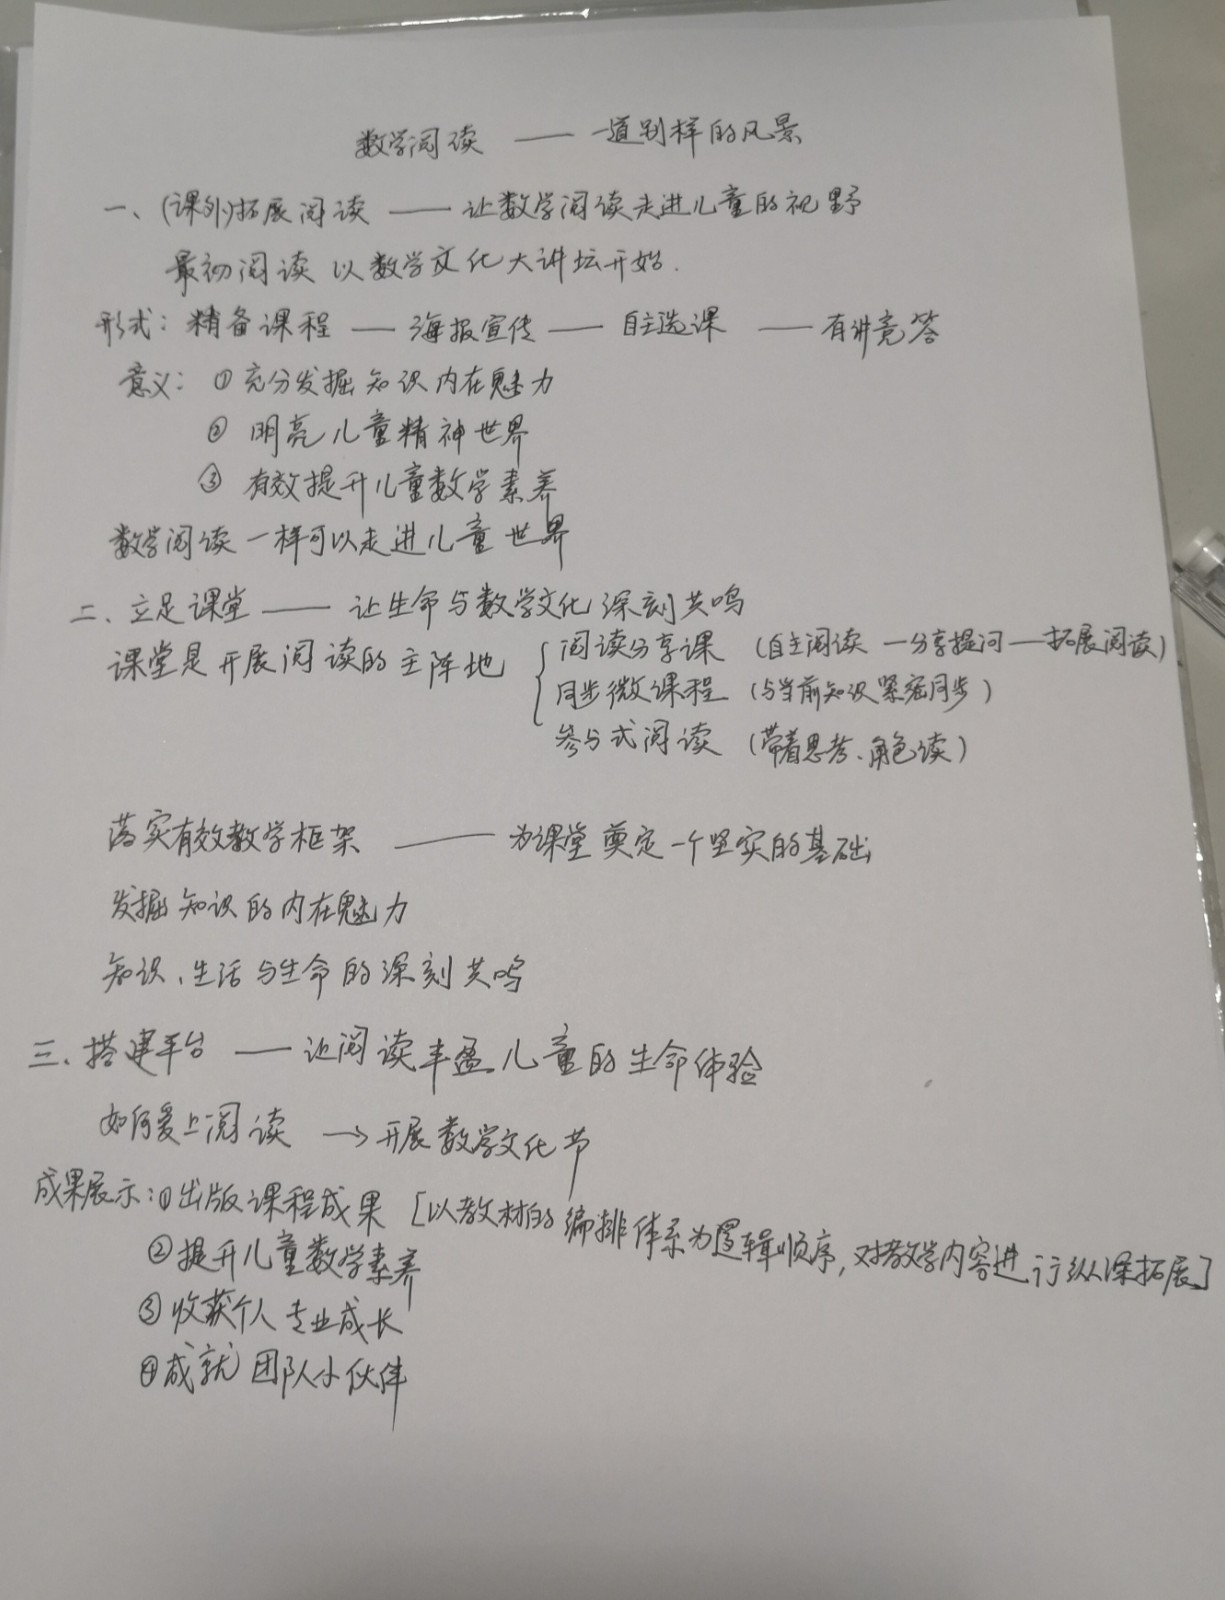 数学阅读 —— 一道别样的风景
一、(课外)拓展阅读 —— 让数学阅读走进儿童的视野
最初阅读 以数学文化大讲坛开始.
形式：精备课程 — 海报宣传 — 自主选课 — 有讲竞答
意义：①充分发掘知识内在魅力
② 明亮儿童精神世界
③ 有效提升儿童数学素养
数学阅读一样可以走进儿童世界
二、立足课堂 —— 让生命与数学文化深刻共鸣
课堂是开展阅读的主阵地 { 阅读分享课 (自主阅读 — 分享提问 — 拓展阅读)
同步微课程 (与当前知识紧密同步)
参与式阅读 (带着思考、角色读)
落实有效教学框架 —— 为课堂奠定一个坚实的基础
发掘知识的内在魅力
知识、生活与生命的深刻共鸣
三、搭建平台 —— 让阅读丰盈儿童的生命体验
如何爱上阅读 → 开展数学文化节
成果展示：①出版课程成果 [以教材的编排体系为逻辑顺序，对教学内容进行纵深拓展]
②提升儿童数学素养
③收获个人专业成长
④成就团队小伙伴